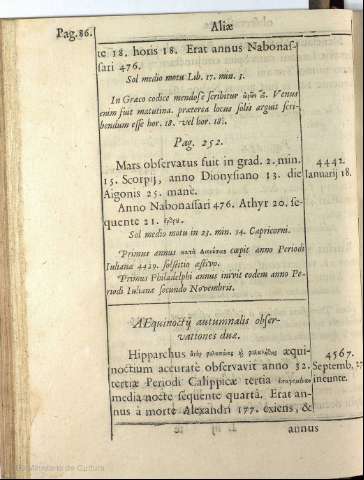 Pag. 86.
Aliæ
te 18. horis 18. Erat annus Nabonas-
sari 476.
Sol medio motu Lib. 17. min. 5.
In Græco codice mendosè scribitur
Venus
enim fuit matutina. præterea locus solis arguit scri-
bendum esse hor. 18. vel hor. 18½.
Pag. 252.
Mars observatus fuit in grad. 2. min.
15. Scorpij, anno Dionysiano 13. die
Aigonis 25. mane.
Anno Nabonassari 476. Athyr 20. se-
quente 21.
4442.
Ianuarij 18.
Sol medio motu in 23. min. 54. Capricorni.
Primus annus κατὰ Διονύσιον cœpit anno Periodi
Iulianæ 4429. solstitio æstivo.
Primus Philadelphi annus inivit eodem anno Pe-
riodi Iulianæ secundo Novembris.
ÆEquinoctij autumnalis obser-
vationes duæ.
Hipparchus
æqui-
noctium accuratè observavit anno 32.
tertiæ Periodi Calippicæ tertia
media nocte sequente quartâ. Erat an-
nus à morte Alexandri 177. exiens, &
4567.
Septemb. 27
ineunte.
annus
Ministerio de Cultura